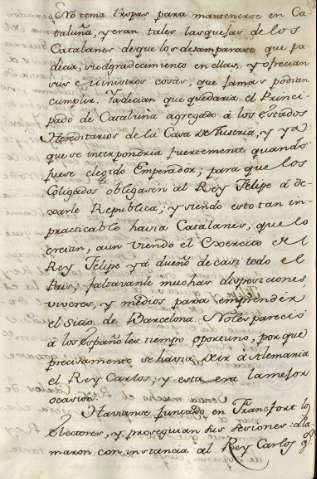 No tenia tropas para mantenerse en Ca
taluña, y eran tales las quejas de los
Catalanes de que los desamparava que pa
decia, su desgradecimiento en ellas, y ofrecian
sus Ministros cosas, que jamas podian
cumplir. Decian que quedaria el Princi
pado de Cataluña agregado à los Estados
Hereditarios de la Casa de Austria, y ya
que se interpondria fuertemente quando
fuese elegido Emperador, para que los
Coligados obligasen al Rey Felipe à de
xarle Republica; y siendo esto tan in
practicable havia Catalanes, que lo
creian, aun viendo el Exercito del
Rey Felipe yà dueño de casi todo el
Pais, faltavanle muchas disposiciones
viveres, y medios para emprendèr
el Sitio de Barcelona. No les pareciò
à los Españoles tiempo oportuno, por que
precisamente se havia de ir à Alemania
el Rey Carlos, y esta era la mejor
ocasion.
Havianse juntado en Francfort los
Electores, y proseguian sus sesiones: lla
maron con instancia al Rey Carlos